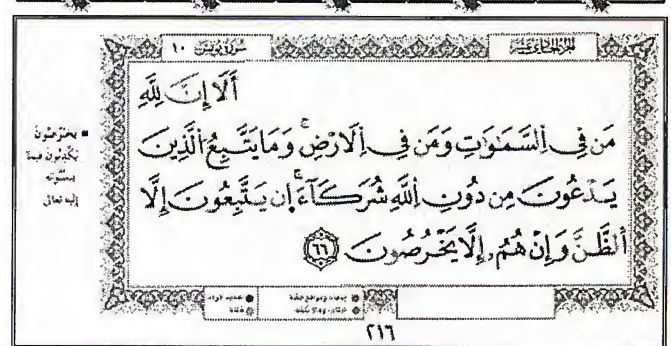 سورة يونس ١٠
أَلَا إِنَّ لِلَّهِ
مَن فِي السَّمَٰوَٰتِ وَمَن فِي الْأَرْضِ ۗ وَمَا يَتَّبِعُ الَّذِينَ
يَدْعُونَ مِن دُونِ اللَّهِ شُرَكَآءَ ۚ إِن يَتَّبِعُونَ إِلَّا
اَلظَّنَّ وَإِنْ هُمُۥ إِلَّا يَخْرُصُونَ ٦٦
■ يخرصون
يكذبون فيما
ينسبونه
إليه تعالى
٢١٦